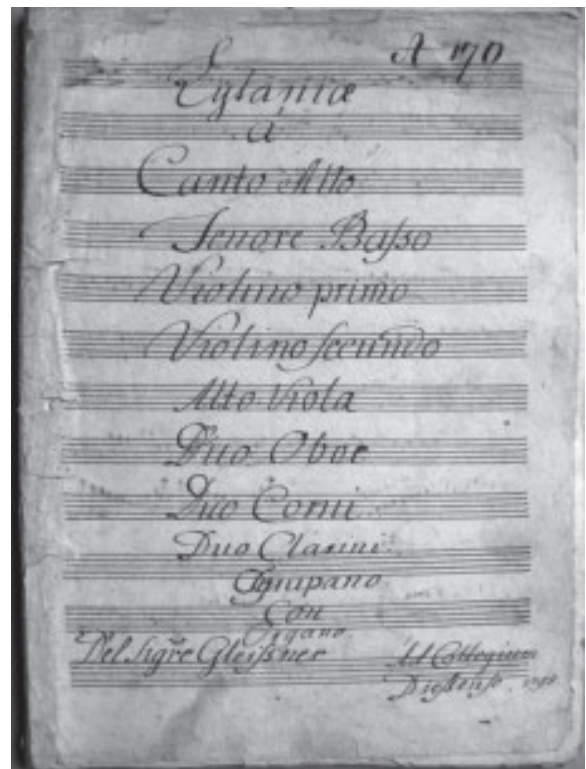 A 170
Lytaniæ
à
Canto Alto
Tenore Basso
Violino primo
Violino secundo
Alto Viola
Duo Oboe
Duo Corni
Duo Clarini
Tympano
Con
Organo
Del Sigre Gleißner
Ad Collegium